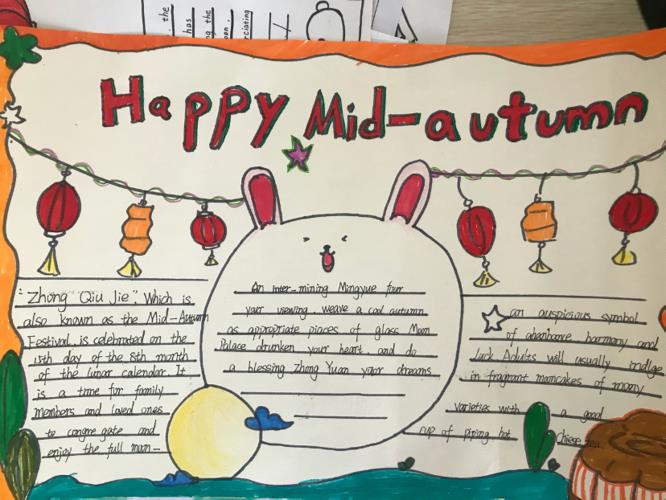 the
has
ng the
ciating
Happy Mid-autumn
"Zhong Qiu Jie". Which is
also known as the Mid-Autumn
Festival, is celebrated on the
15th day of the 8th month
of the lunar calendar. It
is a time for family
members and loved ones
to congregate and
enjoy the full moon-
An inter-mining Mingyue four
your viewing. weave a cool autumn.
as appropriate pieces of glass Moon
Palace drunken your heart. and do
a blessing Zhong Yuan your dreams
an auspicious symbol
of harmony and
luck Adults will usually
in fragrant mooncakes of many
varieties with a good
cup of piping hot